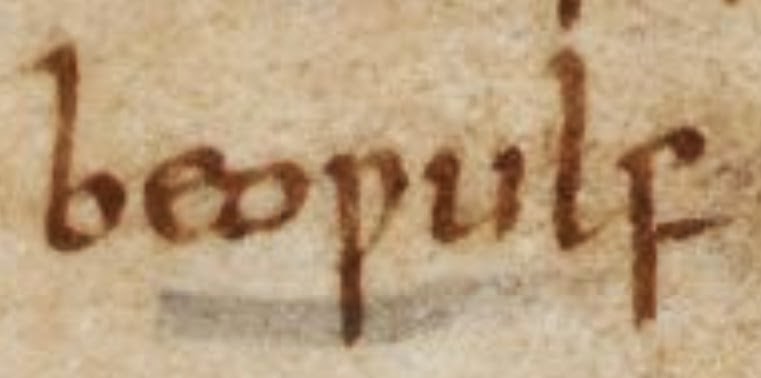 beoƿulf